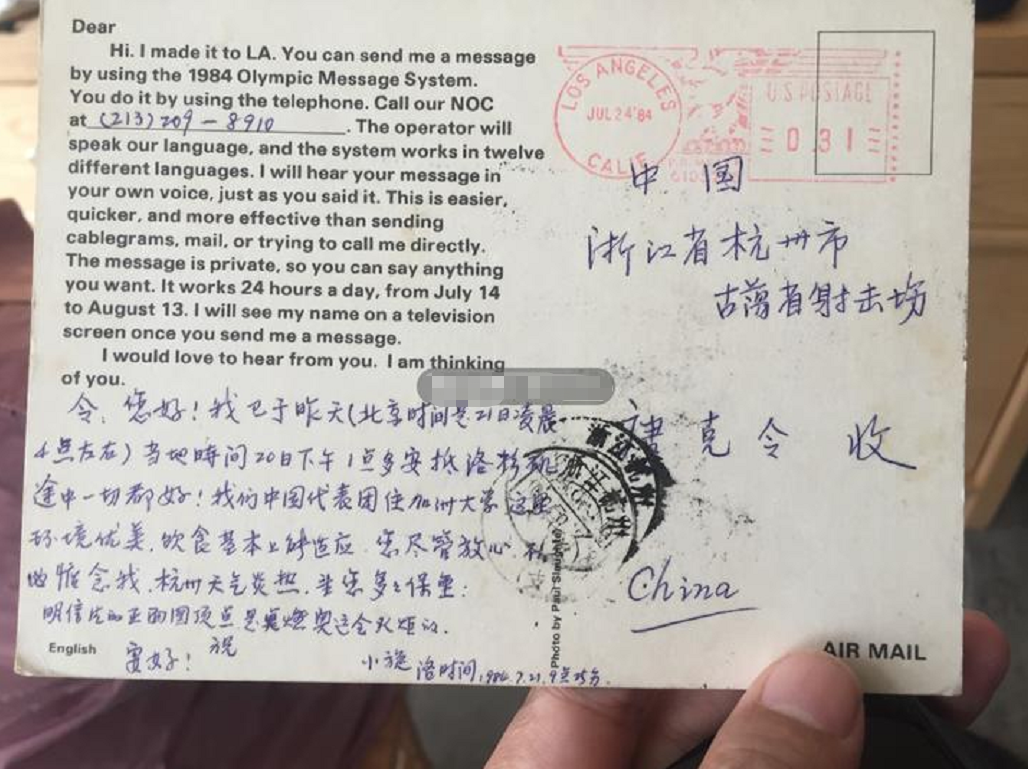 Dear
Hi. I made it to LA. You can send me a message
by using the 1984 Olympic Message System.
You do it by using the telephone. Call our NOC
at (213)209-8910. The operator will
speak our language, and the system works in twelve
different languages. I will hear your message in
your own voice, just as you said it. This is easier,
quicker, and more effective than sending
cablegrams, mail, or trying to call me directly.
The message is private, so you can say anything
you want. It works 24 hours a day, from July 14
to August 13. I will see my name on a television
screen once you send me a message.
I would love to hear from you. I am thinking
of you.
令,您好!我已于昨天(北京时间是21日凌晨
4点左右)当地時间20日下午1点多安抵洛杉矶
途中一切都好!我们中国代表团住加洲大学,这里
环境优美,饮食基本上能适应,您尽管放心,
惦念我,杭州天气炎热,望您多多保重:
明信片的正面圆顶点是奠燃奥运会火炬
祝
安好!
小旋 洛时间,1984.7.21.9点25分.
English
LOS ANGELES
JUL 24 '84
CALIF
U.S. POSTAGE
0 3 1
中国
浙江省杭州市
古荡省射击场
克令 收
浙江杭州
浙江杭州
China
Photo by Paul
AIR MAIL